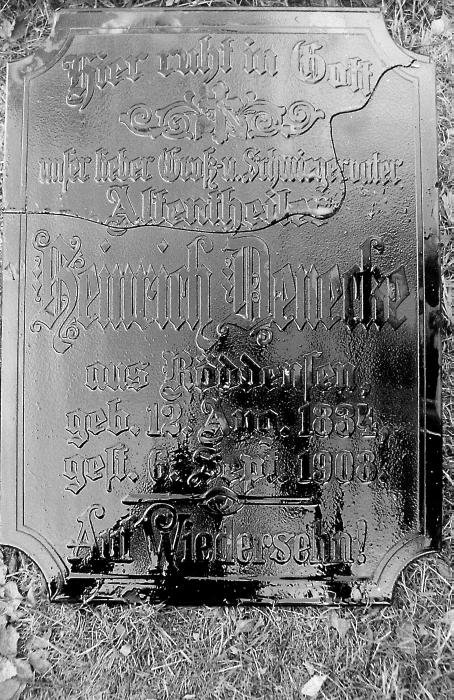 Hier ruht in Gott
unser lieber Groß u. Schwiegervater
Altentheiler
Heinrich Denecke
aus Röddensen,
geb. 12. Aug. 1834,
gest. 6. Sept. 1908.
Auf Wiedersehn!